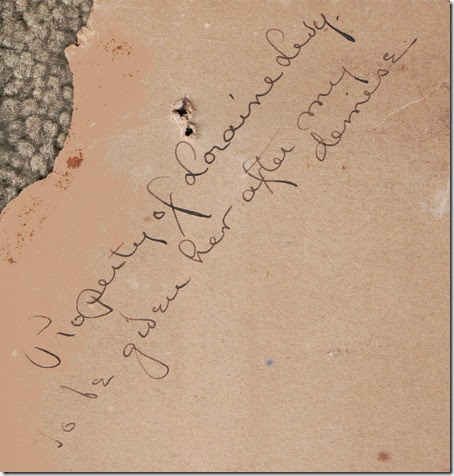 Property of Loraine Levy.
to be given her after my
demise